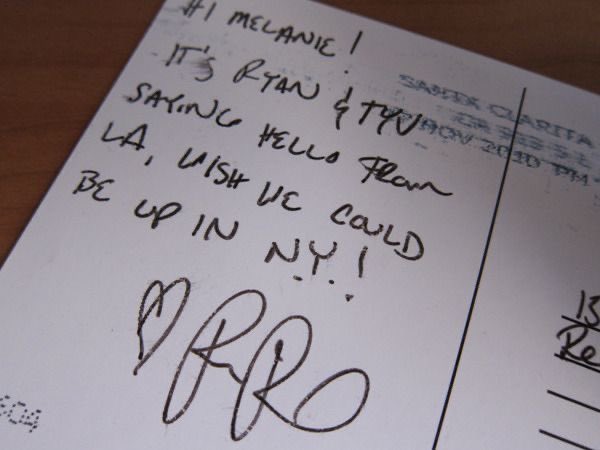 HI MELANIE!
IT'S RYAN & TYN
SAYING HELLO FROM
LA, WISH WE COULD
BE UP IN N.Y.!
SANTA CLARITA
NOV 2010 PM
13
Re